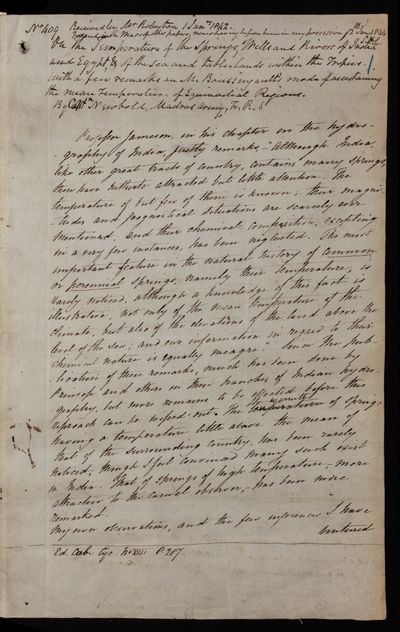 No 400 Received by Mr Roberton 1 Jany 1842.
On the Temperature of the Springs, Wells and Rivers of India
and Egypt & of the Sea and table-lands within the Tropics.
with a few remarks on M. Boussingault's mode of ascertaining
the mean Temperature of Equinoctial Regions.
By Captn Newbold, Madras Army, F. R. S
Professor Jameson, in his chapter on the hydro-
-graphy of India, justly remarks - "Although India,
like other great tracts of country, contains many springs,
these have hitherto attracted but little attention. The
temperature of but few of them is known; their magni-
-tudes and geognostical situations are scarcely ever
mentioned, and their chemical composition, excepting
in a very few instances, has been neglected. The most
important feature in the natural history of Common
or perennial Springs, namely their temperature, is
rarely noticed, although a knowledge of this fact is
illustrative, not only of the mean temperature of the
climate, but also of the elevations of the land above the
level of the sea; and our information in regard to their
chemical nature is equally meagre." Since the pub-
-lication of these remarks, much has been done by
Prinsep and others in these branches of Indian hydro
graphy, but more remains to be effected before this
reproach can be wiped out. The of springs
having a temperature little above the mean of
that of the surrounding country, has been rarely
noticed, though I feel convinced many such exist
in India. That of springs of high temperature, more
attractive to the casual observer, - has been more
remarked.
My own observations, and the few inferences I have
ventured
Ed. Cab. Cyc. No VIII P. 287.